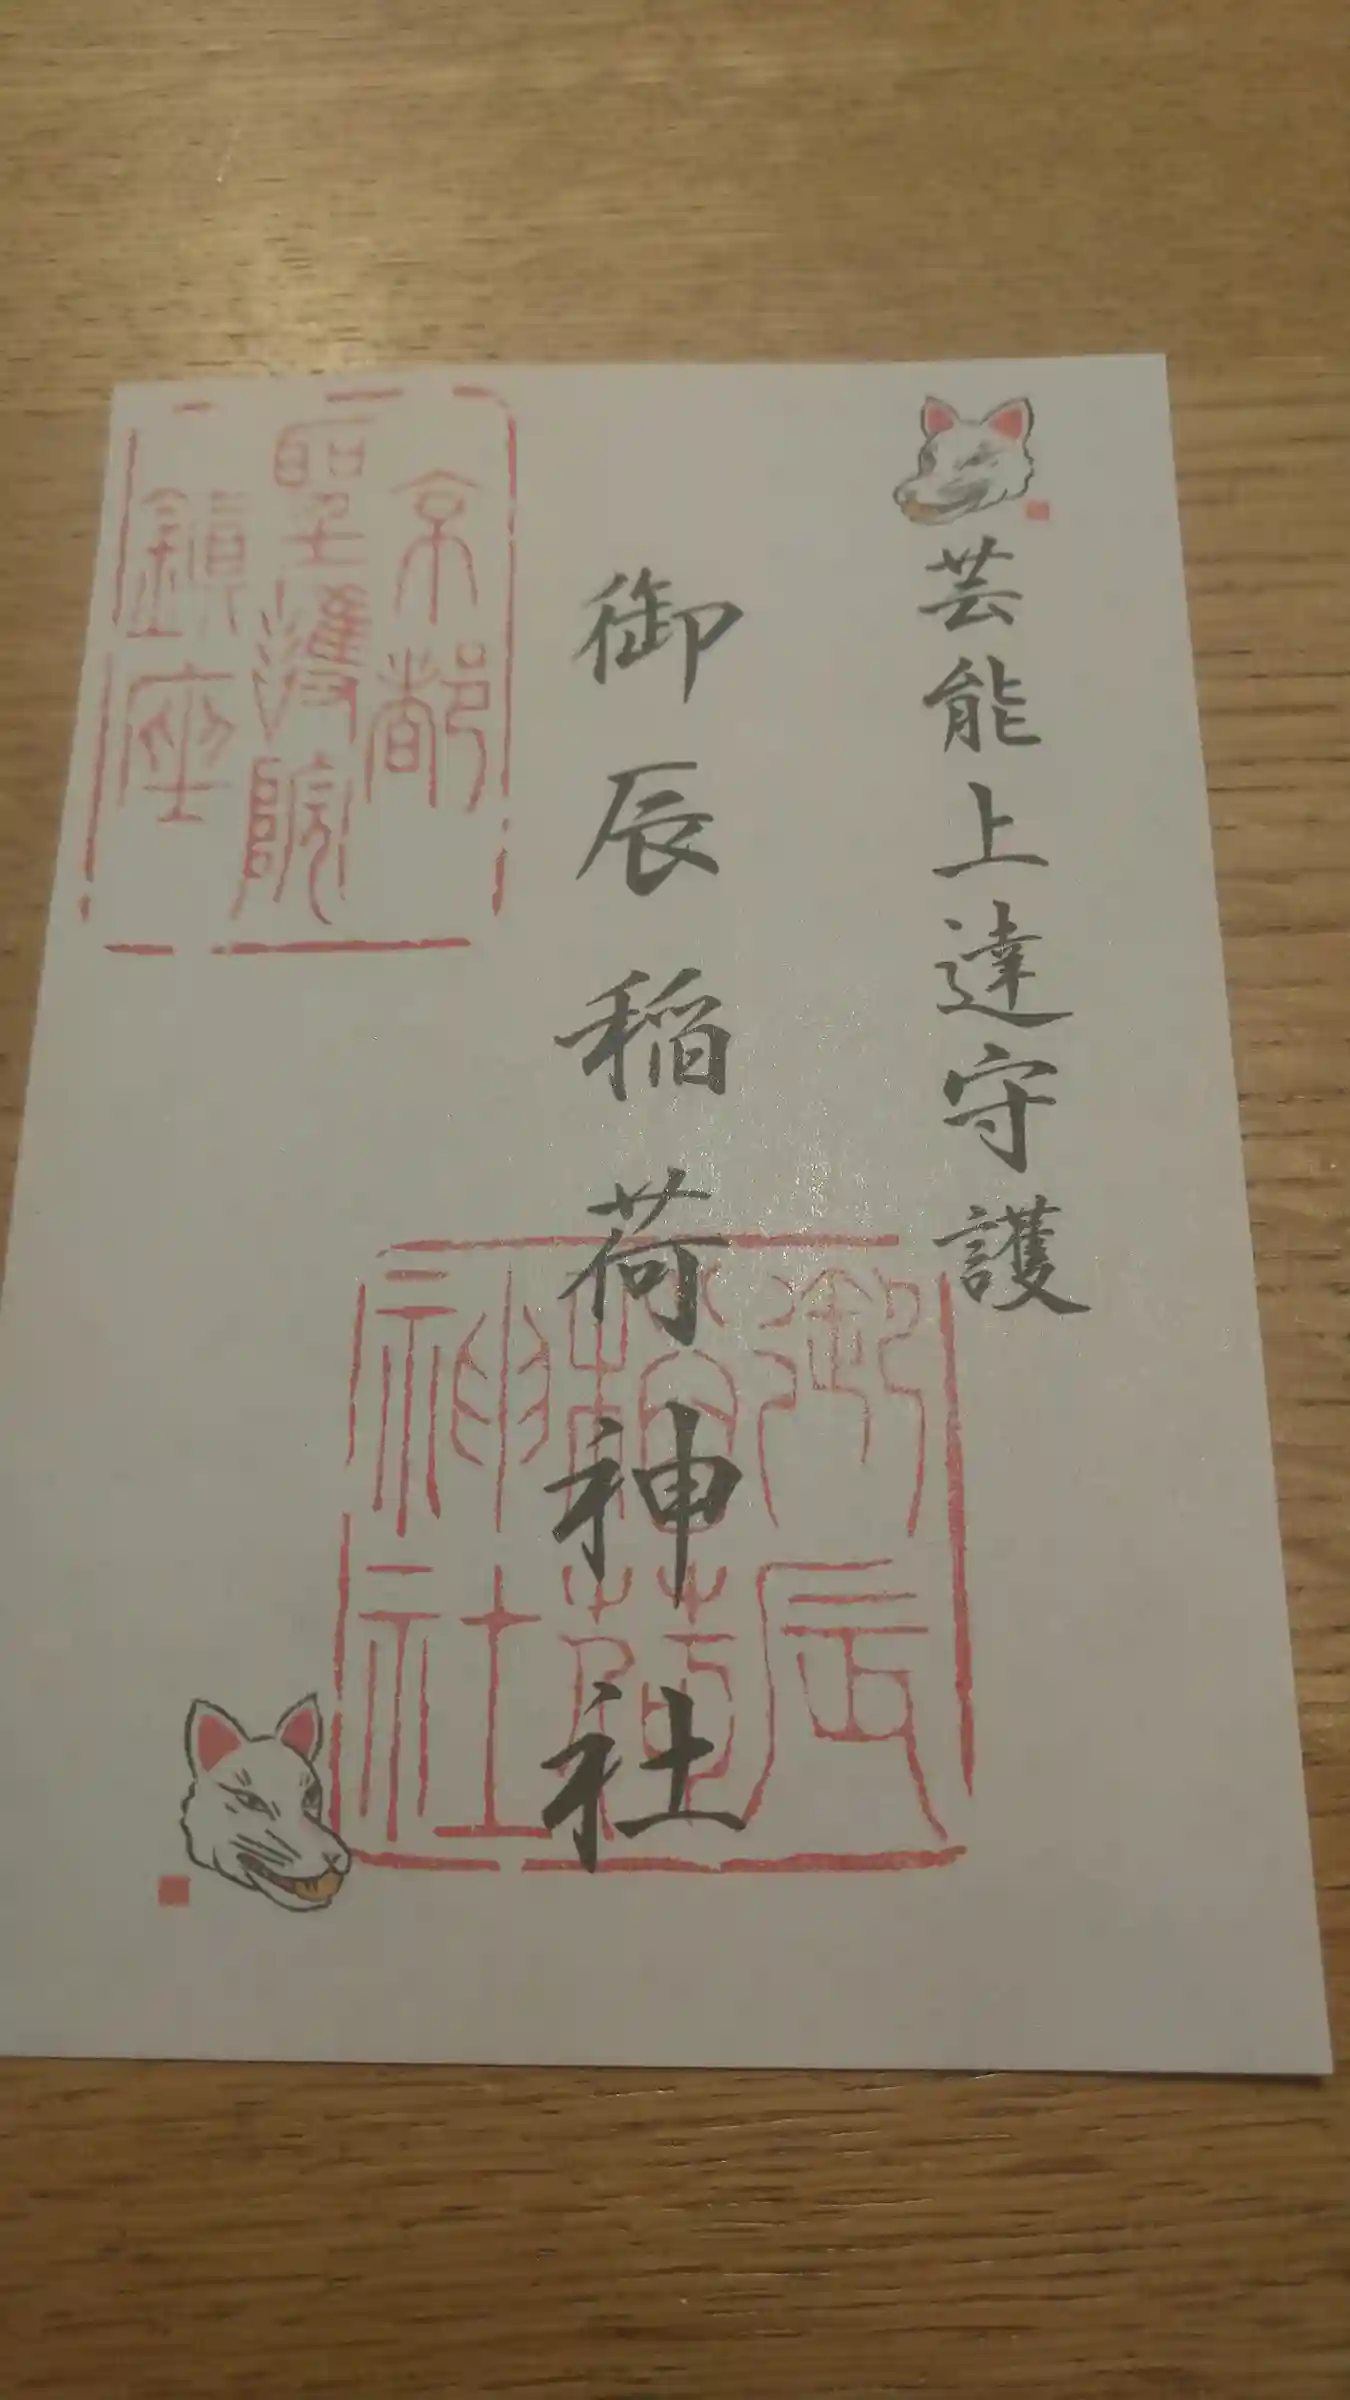 芸能上達守護
御辰稲荷神社
京都
聖護院
鎮座
御辰
稲荷
神社